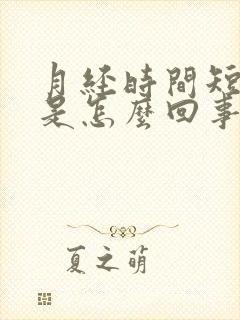 月经時間短
是怎麼回事
夏之萌